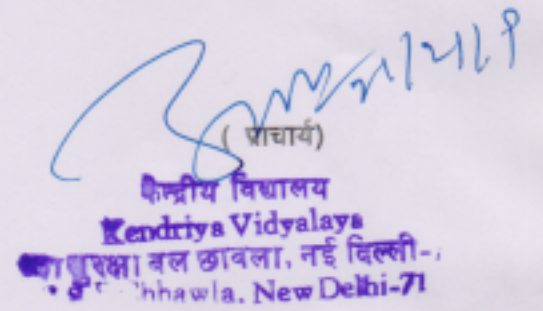 ( प्राचार्य)
केन्द्रीय विद्यालय
Kendriya Vidyalaya
सुरक्षा बल छावला, नई दिल्ली-
Chhawla, New Delhi-71